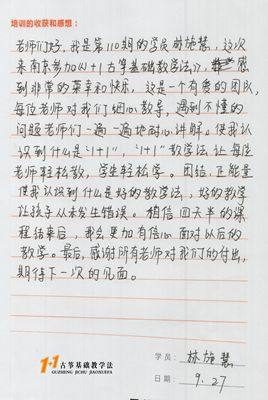 培训的收获和感想：
老师们好，我是第110期的学员林施慧，这次
来南京参加1+1古筝基础教学法，感
到非常的荣幸和快乐，这是一个有爱的团队，
每位老师对我们细心教导，遇到不懂的
问题老师们一遍一遍地耐心讲解。使我认
识到什么是"1+1"，"1+1"教学法让每位
老师轻松教，学生轻松学。团结、正能量
使我认识到什么是好的教学法，好的教学
让孩子从未发生错误。相信四天半的课
程结束后，我会更加有信心面对以后的
教学。最后，感谢所有老师对我们的付出，
期待下一次的见面。
1+1古筝基础教学法
GUZHENG JICHU JIAOXUEFA
学员：林施慧
日期：9.27